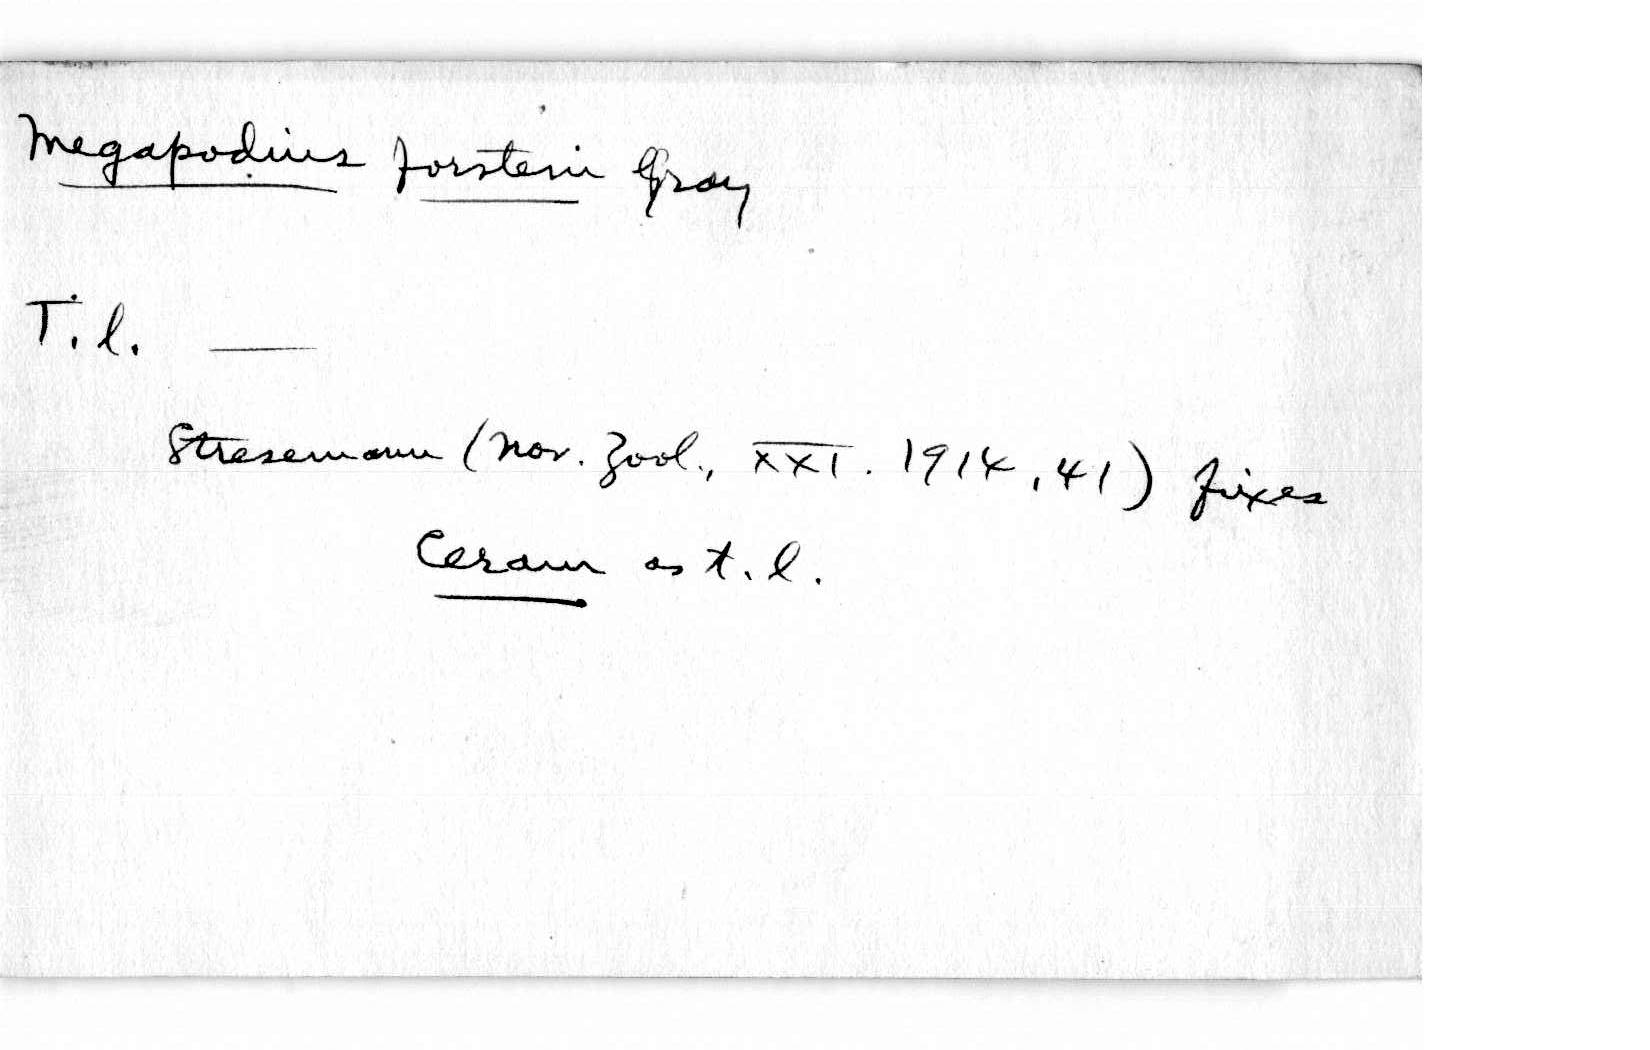 Megapodius forsteni Gray
T. l. —
Stresemann (Nov. Zool., XXI. 1914, 41) fixes
Ceram as t. l.